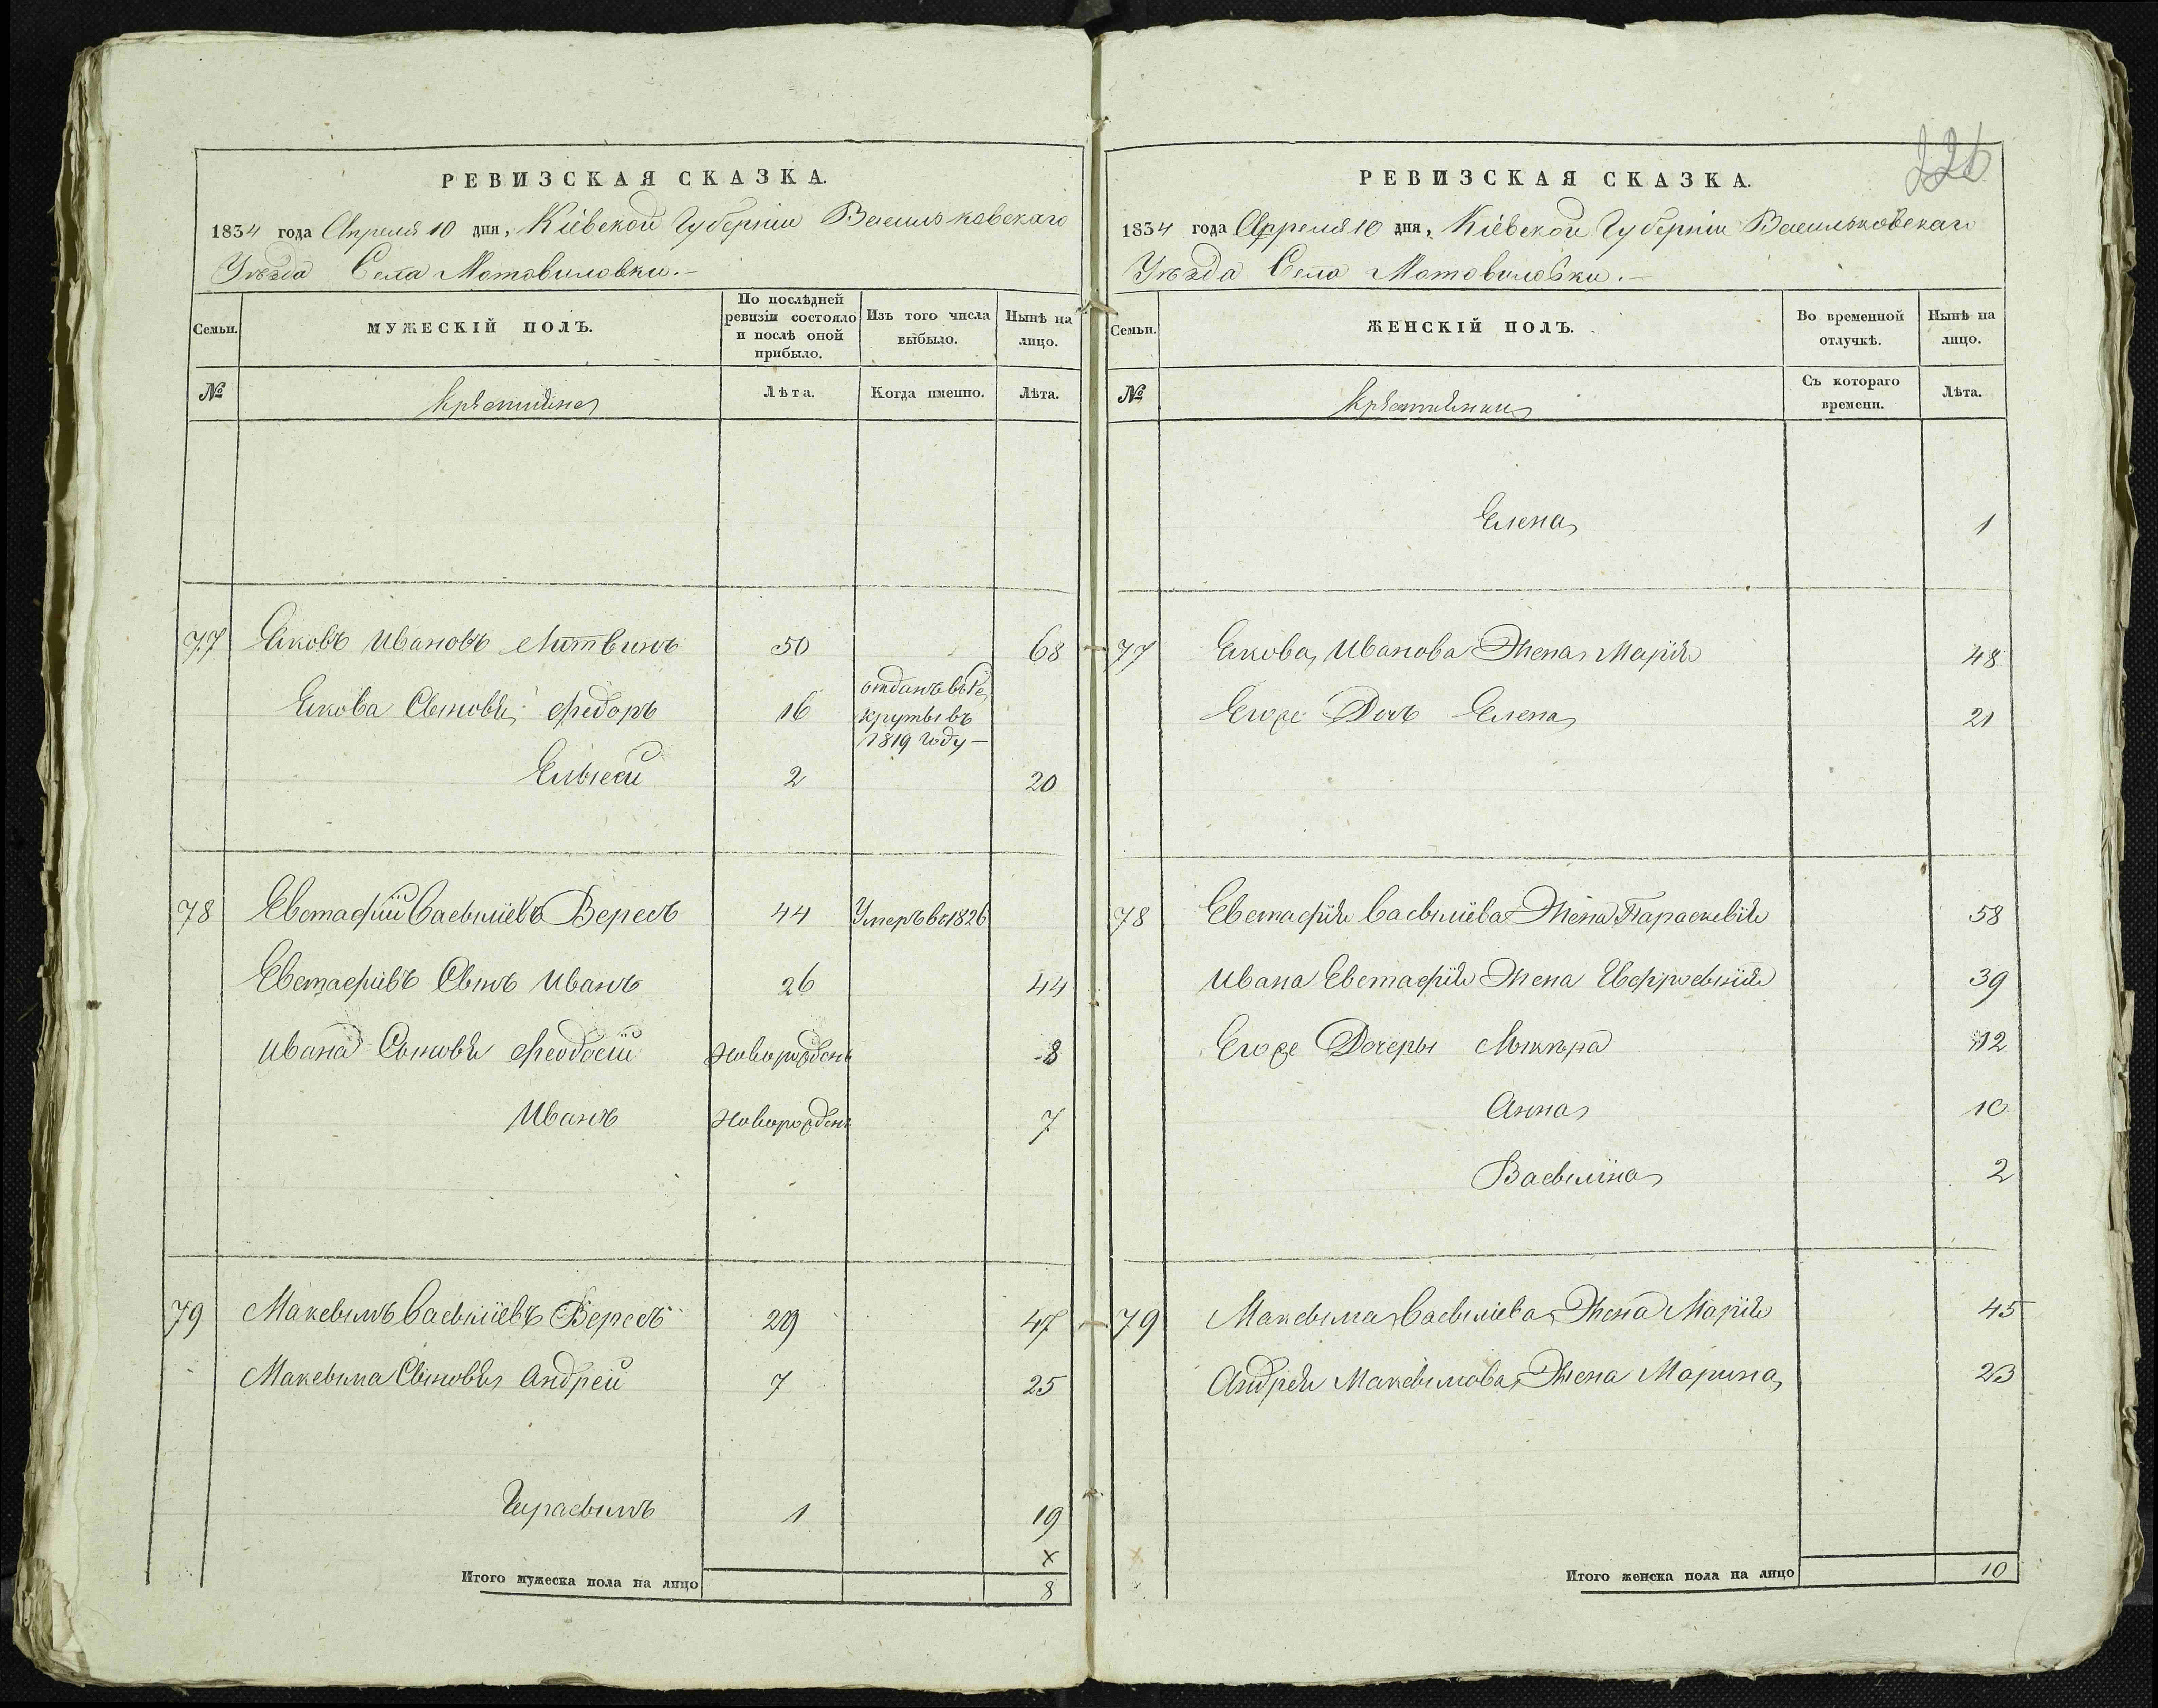 РЕВИЗСКАЯ СКАЗКА.
1834 года Апреля 10 дня, Кіевской Губерніи Васильковскаго
Уѣзда Села Мотовиловки.—
Семьи.
МУЖЕСКІЙ ПОЛЪ.
По послѣдней
ревизіи состояло
и послѣ оной
прибыло.
Изъ того числа
выбыло.
Нынѣ на
лицо.
№
Крестьяне
Лѣта.
Когда именно.
Лѣта.
77 Яковъ Ивановъ Литвинъ 50 68
Якова Сыновья Федоръ 16 отданъ въ Ре
крутывъ
1819 году—
2 20
78 Евстафий Васылiевъ Вересъ 44 Умеръ въ 1826
Евстафiвъ Сынъ Иванъ 26 44
Ивана Сыновья Феодосiй новорожденъ 8
Иванъ новорожденъ 7
79 Максымъ Васылiевъ Вересъ 29 47
Максыма Сыновья Андрей 7 25
Герасымъ 1 19
x
Итого мужеска пола на лицо 8
226
РЕВИЗСКАЯ СКАЗКА.
1834 года Апреля 10 дня, Кіевской Губерніи Васильковскаго
Уѣзда Села Мотовиловки.—
Семьи.
ЖЕНСКІЙ ПОЛЪ.
Во временной
отлучкѣ.
Нынѣ на
лицо.
№
Крестьянки
Съ котораго
времени.
Лѣта.
Елена 1
77 Якова Иванова Жена Марiя 48
Егоже Дочь Елена 21
78 Евстафiя Васылiева Жена Параскевiя 58
Ивана Евстафiя Жена Евфросынiя 39
Егоже Дочеры 12
Анна 10
Васылiна 2
79 Максыма Васылiева Жена Марiя 45
Андрея Максымова Жена Марина 23
x
Итого женска пола на лицо 10